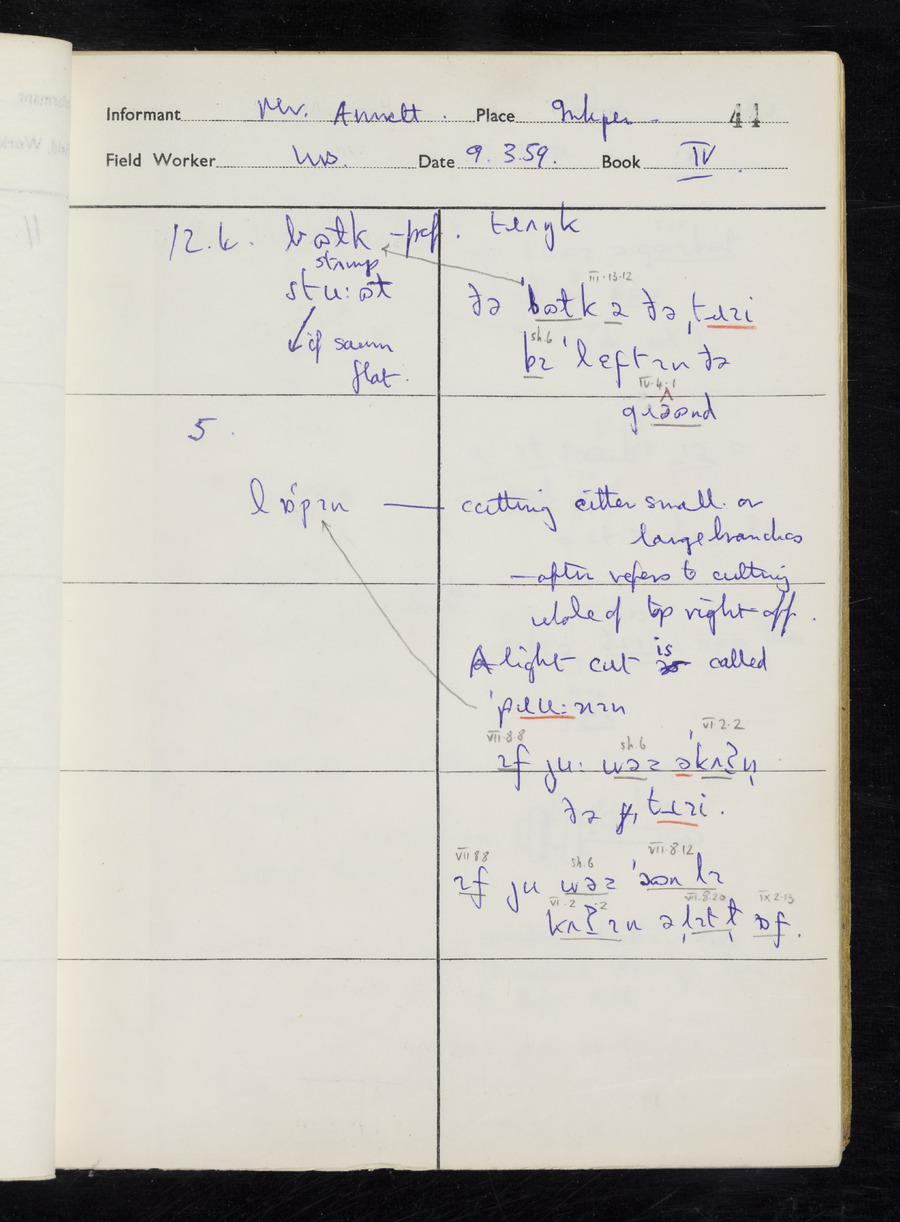 Informant Mr. Annett. Place Inkpen. 44
Field Worker Date 9.3.59. Book IV
12.4. bɒtk -pref. trʌŋk
stump
stu:ət
if sawn
flat.
III.13.12
ðə ˈbɒtk ə ðə ˌtɹɪi
sh.6
bɪ ˈleft ɪn ðə
IV.4.1
gɹəʊnd
5.
lɒpɪn — cutting either small or
large branches
— often refers to cutting
whole of top right off.
A light cut is called
ˈpɹu:nɪn
VII.8.8 sh.6 VI.2.2
ɪf ju: wəz əkʌʔn̩
ðə ˌtɹɪi.
VII.8.8 sh.6 VII.8.12
ɪf ju wəz ˈəʊnlɪ
VI.2.2 VII.8.20 IX.2.13
kʌʔɪn ə ˌlɪtl̩ ɒf.